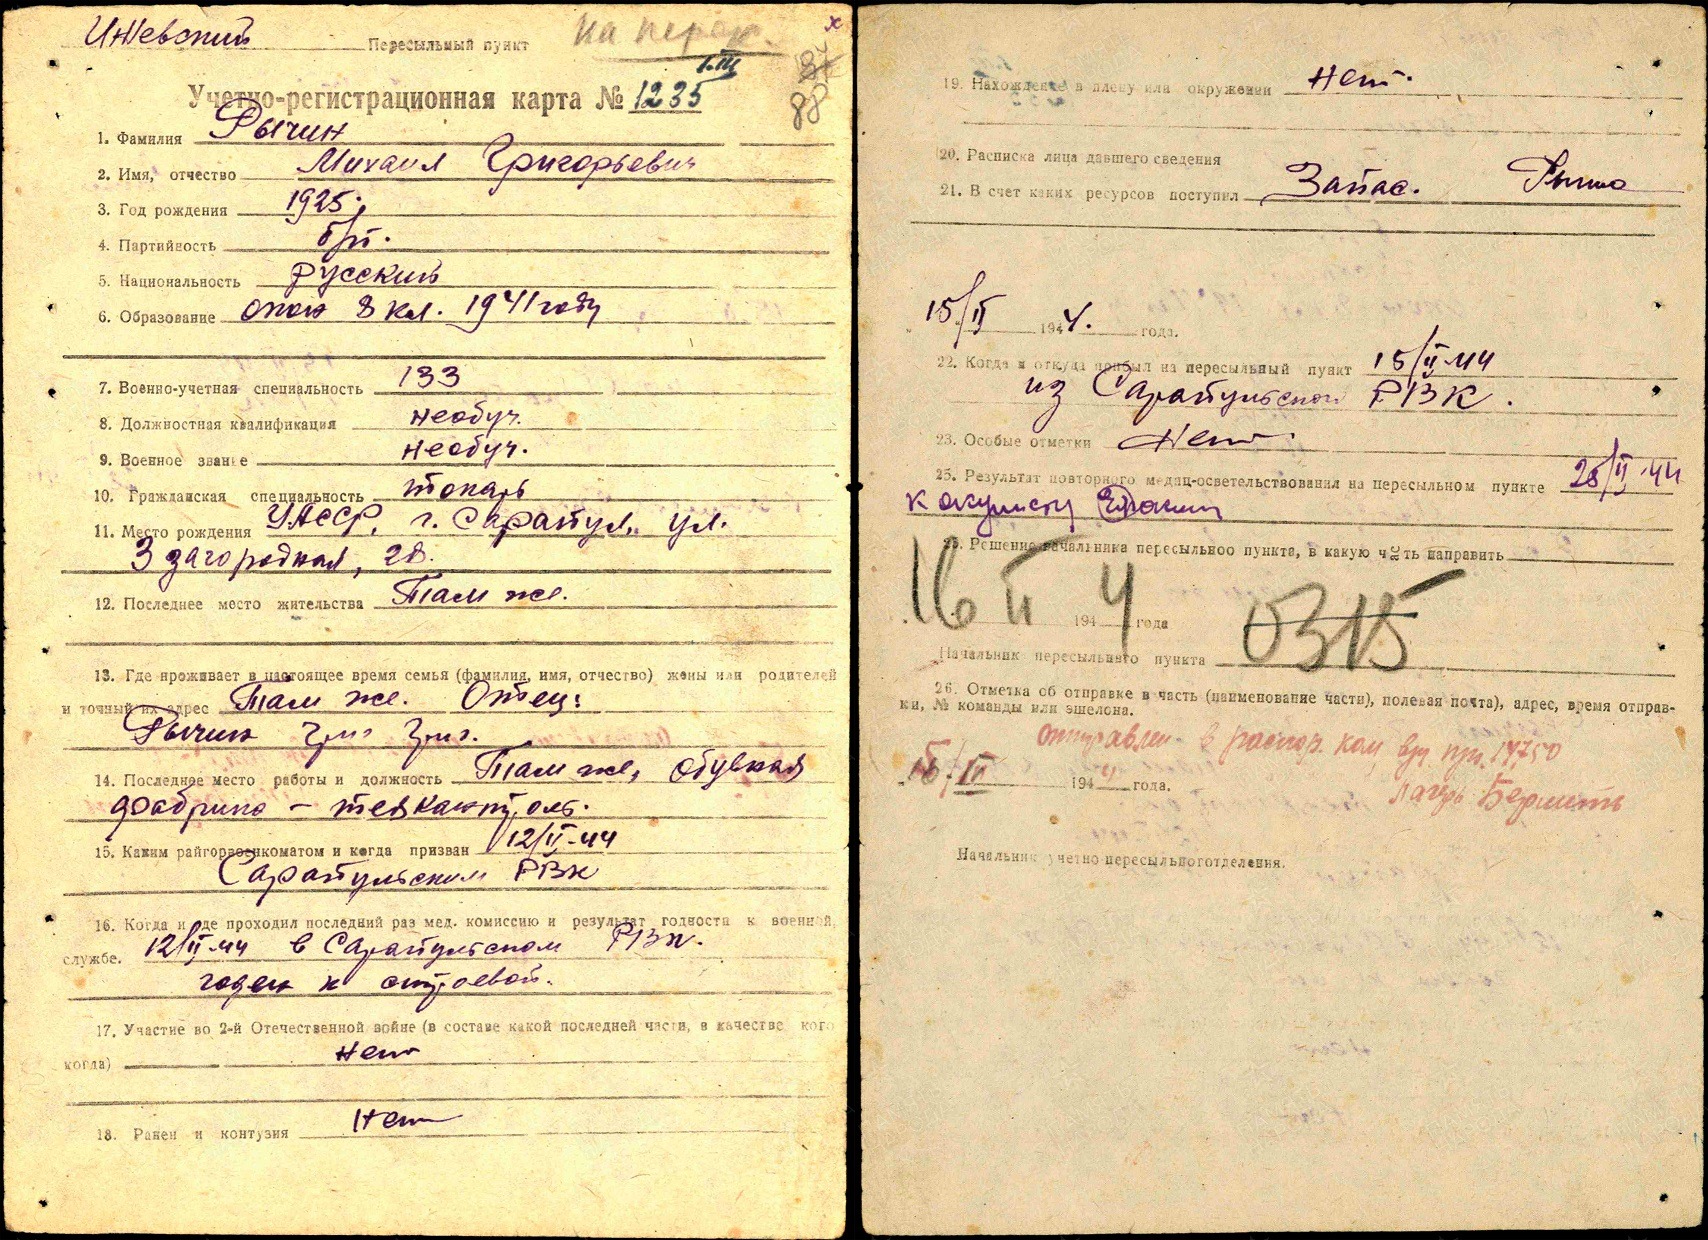 Ижевский Пересыльный пункт на перак.
1.III
Учетно-регистрационная карта № 1235
88
1. Фамилия Рычин
2. Имя, отчество Михаил Григорьевич
3. Год рождения 1925.
4. Партийность б/п.
5. Национальность русский
6. Образование окон 8 кл. 1941 году
7. Военно-учетная специальность 133
8. Должностная квалификация необуч.
9. Военное звание необуч.
10. Гражданская специальность токарь
11. Место рождения УАССР, г. Сарапул, ул.
3 загородная, 28.
12. Последнее место жительства Там же.
13. Где проживает в настоящее время семья (фамилия, имя, отчество) жены или родителей
и точный их адрес Там же. Отец:
Рычин Григ Григ.
14. Последнее место работы и должность Там же, обувная
фабрика –
15. Каким райгорвоенкоматом и когда призван 12/II-44
Сарапульским РВК
16. Когда и где проходил последний раз мед. комиссию и результат годности к военной
службе. 12/II-44 в Сарапульском РВК.
годен к строевой.
17. Участие во 2-й Отечественной войне (в составе какой последней части, в качестве кого
когда)
Нет
18. Ранен и контузия Нет
19. Нахождение в плену или окружении Нет.
20. Расписка лица давшего сведения
21. В счет каких ресурсов поступил Запас.
15/II 1944. года.
22. Когда и откуда прибыл на пересыльный пункт 15/II-44
из Сарапульского РВК.
23. Особые отметки Нет.
25. Результат повторного медиц-осветельствования на пересыльном пункте 28/II-44
к окулисту
25. Решение начальника пересыльноо пункта, в какую часть направить
16 II 1944 года
Начальник пересыльного пункта ОЗ15
26. Отметка об отправке в часть (наименование части), полевая почта), адрес, время отправ-
ки, № команды или эшелона.
отправлен в распор. ком в/ч пп. 14750
1944 года. лагерь Бершеть
Начальник учетно-пересыльноготделения.